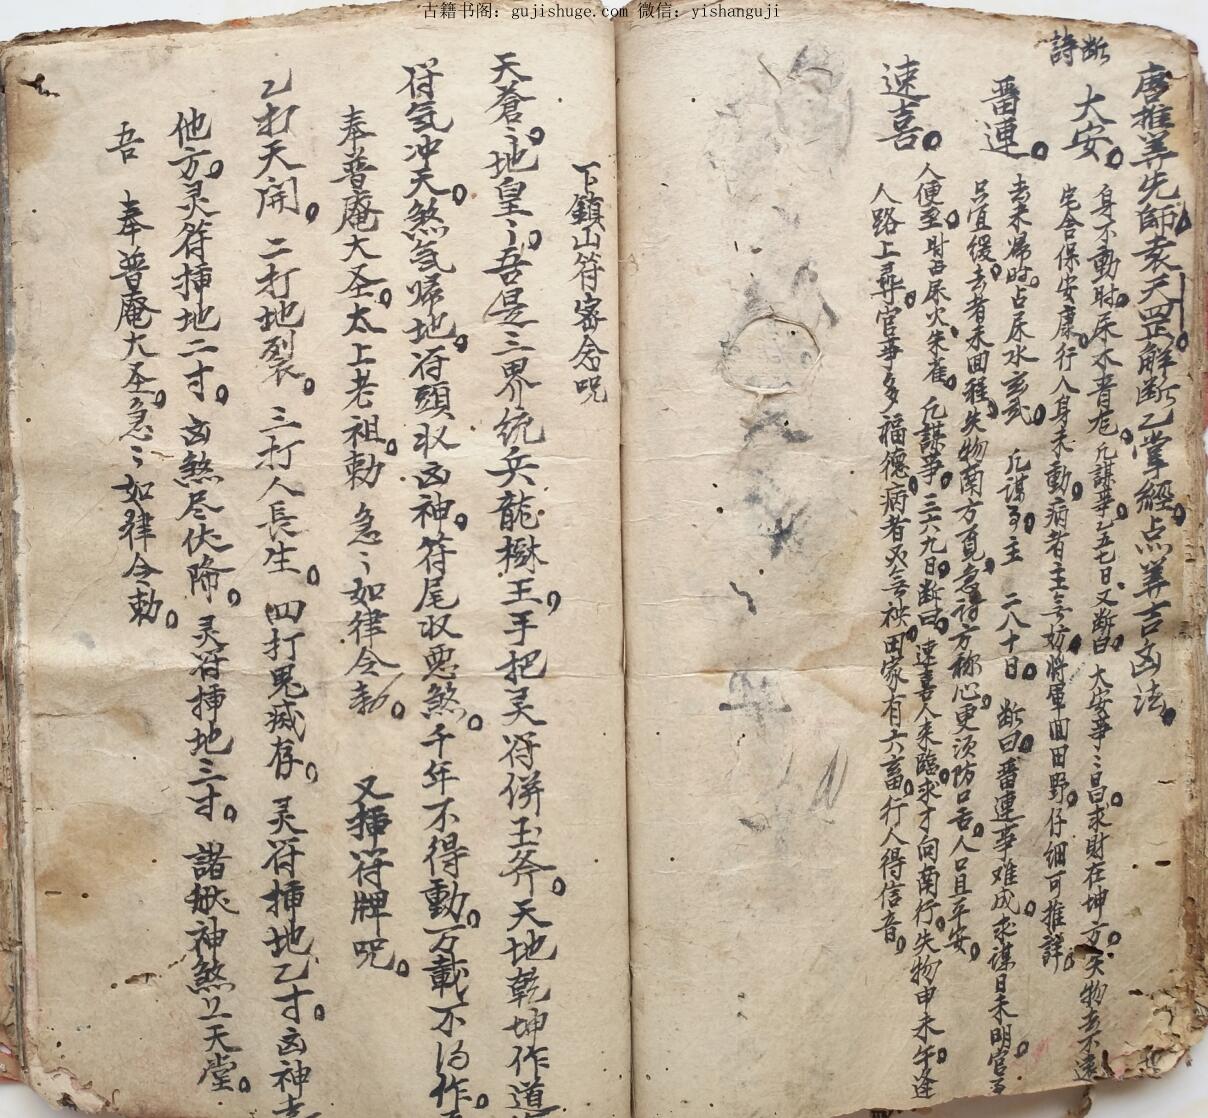 古籍书阁：gujishuge.com 微信：yishanguji
断詩
唐推算先師袁天罡解断乙掌經点算吉凶法
大安
身不動时
凡謀事乙五七日又断曰 大安事〻昌求財在坤方失物去不遠
宅舍保安康行人身未動病者主无妨將軍回田野仔细可推詳
畱連
去未歸时占尿水玄武 凡谋事主 二八十日 断曰畱連事难成求谋日未明官事
只宜缓去者未回程失物南方覓急討方称心更须防口舌人口且平安
速喜
人便至时占尿火朱雀 凡謀事三六九日断曰速喜人来臨求才向南行失物申未午逢
人路上尋官事多福德病者必无袂田家有六畜行人得信音
下鎮山符密念呪
天蒼〻地皇〻吾是三界统兵龍楙王手把灵符併玉斧天地乾坤作道
符気冲天煞気㷌地符頭収凶神符尾収悪煞千年不得動万載不得作
奉普庵大圣太上老祖勅 急〻如律令勅 又插符牌呪
乙打天開 二打地裂 三打人長生 四打鬼滅存 灵符插地乙寸凶神走
他方灵符插地二寸凶煞尽伏降灵符插地三寸 諸般神煞上天堂
吾 奉普庵大圣急〻如律令勅